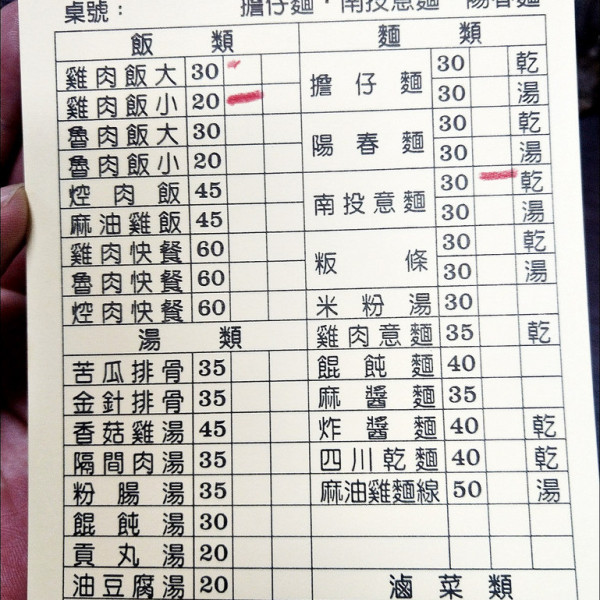 桌號：
擔仔麵．南投意麵　陽春麵
飯類
雞肉飯大 30
雞肉飯小 20
魯肉飯大 30
魯肉飯小 20
焢肉飯 45
麻油雞飯 45
雞肉快餐 60
魯肉快餐 60
焢肉快餐 60
湯類
苦瓜排骨 35
金針排骨 35
香菇雞湯 45
隔間肉湯 35
粉腸湯 35
餛飩湯 30
貢丸湯 20
油豆腐湯 20
麵類
擔仔麵 30 乾
30 湯
陽春麵 30 乾
30 湯
南投意麵 30 乾
30 湯
粄條 30 乾
30 湯
米粉湯 30
雞肉意麵 35 乾
餛飩麵 40
麻醬麵 35
炸醬麵 40 乾
四川乾麵 40 乾
麻油雞麵線 50 湯
滷菜類